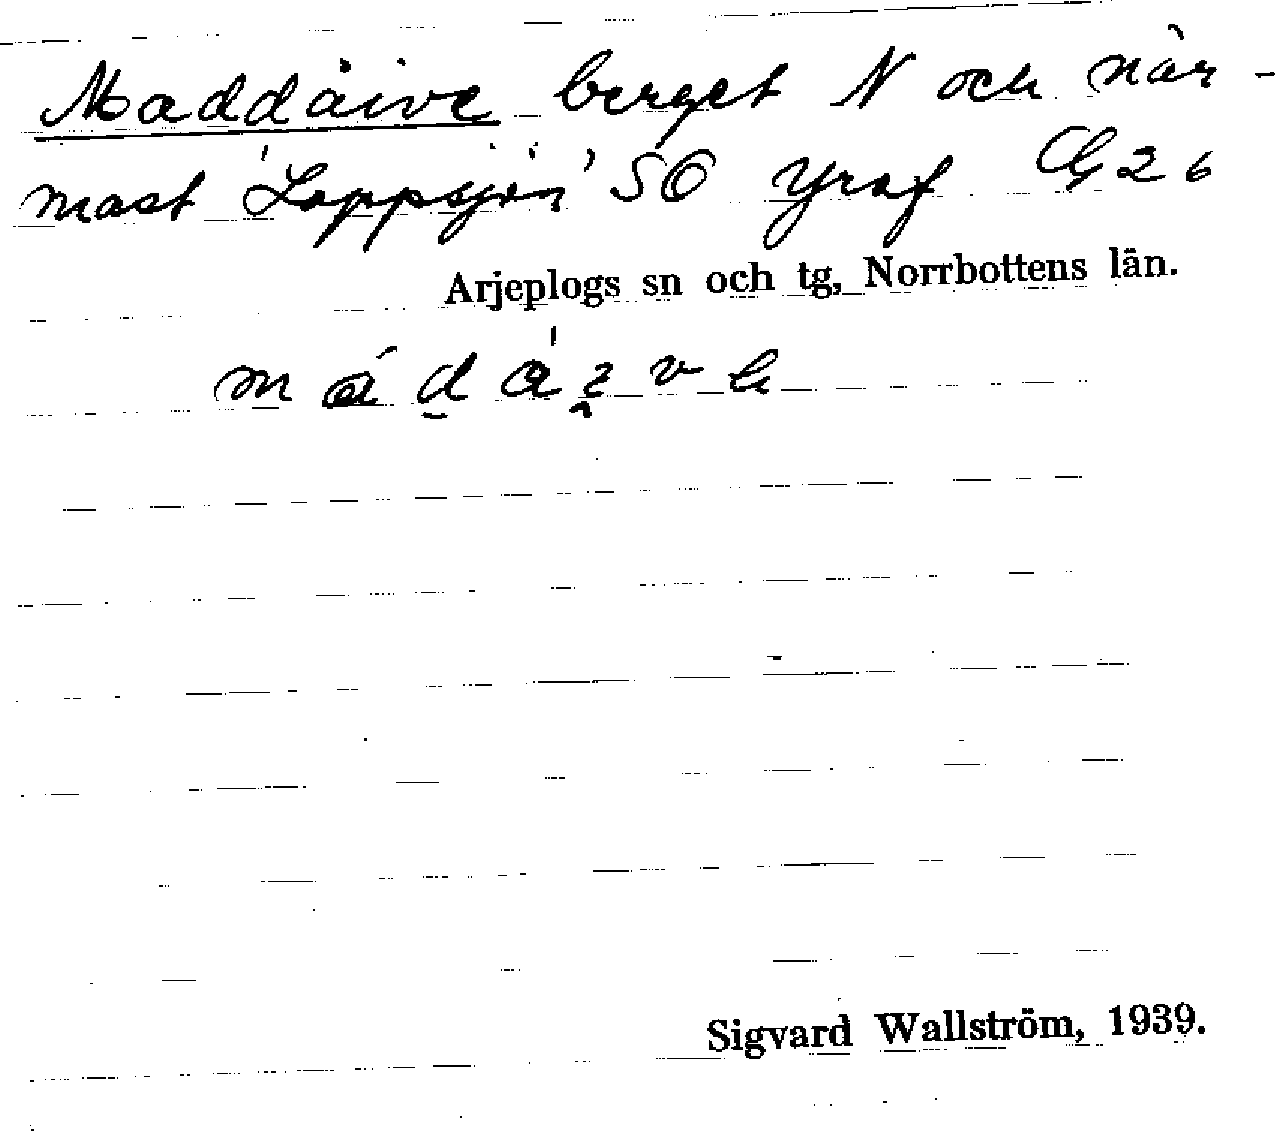 Maddåive berget N och när-
mast 'Lappsjön' SO Yraf G 26
Arjeplogs sn och tg, Norrbottens län.
Sigvard Wallström, 1939.